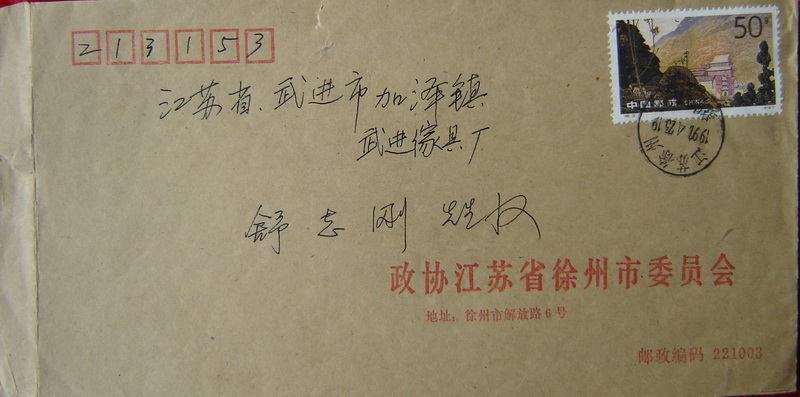 213153
50分
中国邮政 CHINA
江苏省.武进市加泽镇
武进傢具厂
江苏徐州
舒志刚 先生收
政协江苏省徐州市委员会
地址：徐州市解放路6号
邮政编码 221003